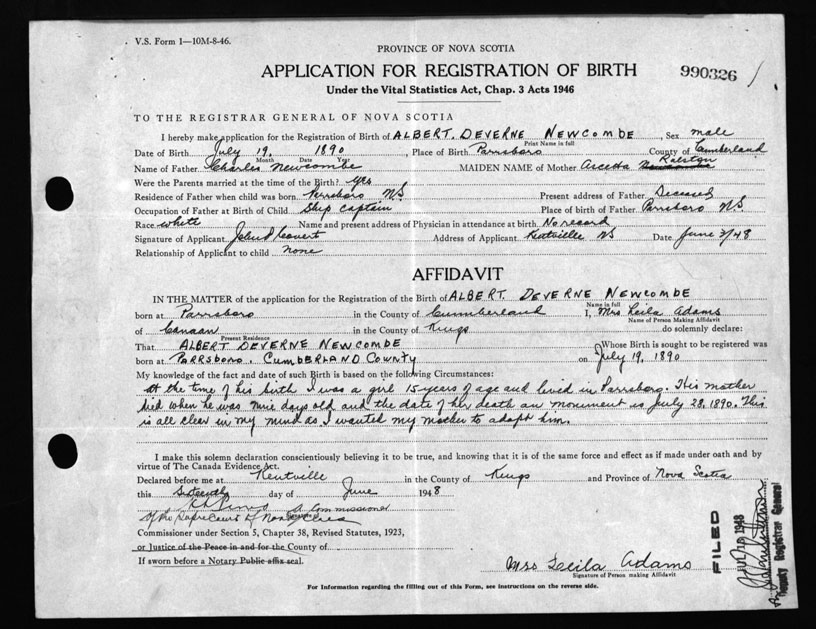 V.S. Form 1—10M-8-46.
PROVINCE OF NOVA SCOTIA
APPLICATION FOR REGISTRATION OF BIRTH
990326
Under the Vital Statistics Act, Chap. 3 Acts 1946
TO THE REGISTRAR GENERAL OF NOVA SCOTIA
I hereby make application for the Registration of Birth of ALBERT. DEVERNE NEWCOMBE, Sex male
Print Name in full
Date of Birth July 19, 1890, Place of Birth Parrsboro County of Cumberland
Month Date Year
Name of Father Charles Newcombe MAIDEN NAME of Mother Ralston
Were the Parents married at the time of the Birth? Yes
Residence of Father when child was born Parrsboro N.S. Present address of Father Deceased
Occupation of Father at Birth of Child Ship Captain Place of birth of Father Parrsboro N.S.
Race white Name and present address of Physician in attendance at birth No record
Signature of Applicant Address of Applicant Kentville NS Date June 48
Relationship of Applicant to child none
AFFIDAVIT
IN THE MATTER of the application for the Registration of the Birth of ALBERT. DEVERNE NEWCOMBE
Name in full
born at Parrsboro in the County of Cumberland I, Mrs Leila Adams
Name of Person Making Affidavit
of Canaan in the County of Kings do solemnly declare:
Present Residence
That ALBERT DEVERNE NEWCOMBE Whose Birth is sought to be registered was
born at PARRSBORO. CUMBERLAND COUNTY on July 19, 1890
My knowledge of the fact and date of such Birth is based on the following Circumstances:
At the time of his birth I was a girl 15 years of age and lived in Parrsboro. His mother
died when he was nine days old and the date of her death on monument is July 28, 1890. This
is all clear in my mind as I wanted my mother to adopt him.
I make this solemn declaration conscientiously believing it to be true, and knowing that it is of the same force and effect as if made under oath and by
virtue of The Canada Evidence Act.
Declared before me at Kentville in the County of Kings and Province of Nova Scotia
this Sixteenth day of June 1948
A Commissioner
of the Supreme Court of Nova Scotia
Commissioner under Section 5, Chapter 38, Revised Statutes, 1923,
or Justice of the Peace in and for the County of
If sworn before a Notary Public affix seal.
Mrs Leila Adams
Signature of Person making Affidavit
For Information regarding the filling out of this Form, see instructions on the reverse side.
FILED
1948
Deputy Registrar General